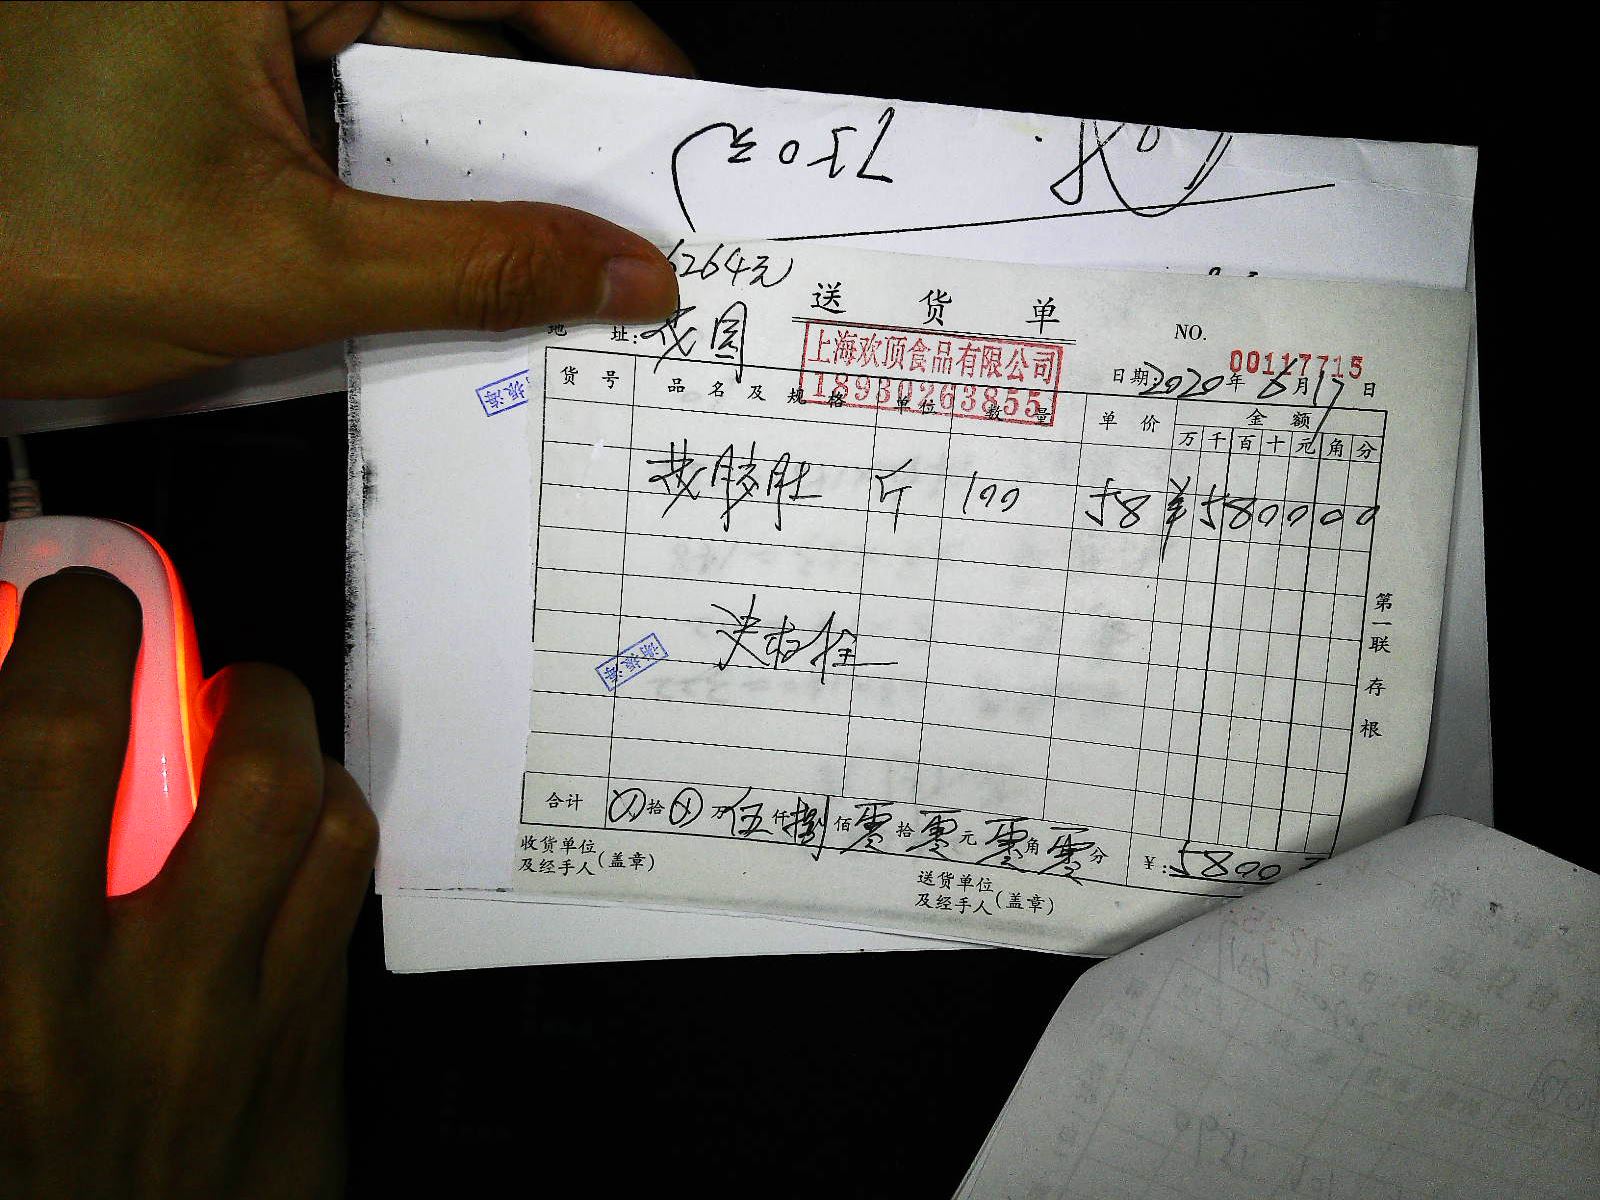 6264元
送 货 单
NO.
00117715
地 址:
上海欢顶食品有限公司
18930263855
日期:2020年6月17日
货 号 品 名 及 规 格 单位 数 量 单 价 金 额
万 千 百 十 元 角 分
斤 100 58 ¥580000
第一联 存根
合计 拾 万 伍 仟 捌 佰 零 拾 零 元 零 角 零 分 ¥:5800
收货单位
及经手人(盖章)
送货单位
及经手人(盖章)